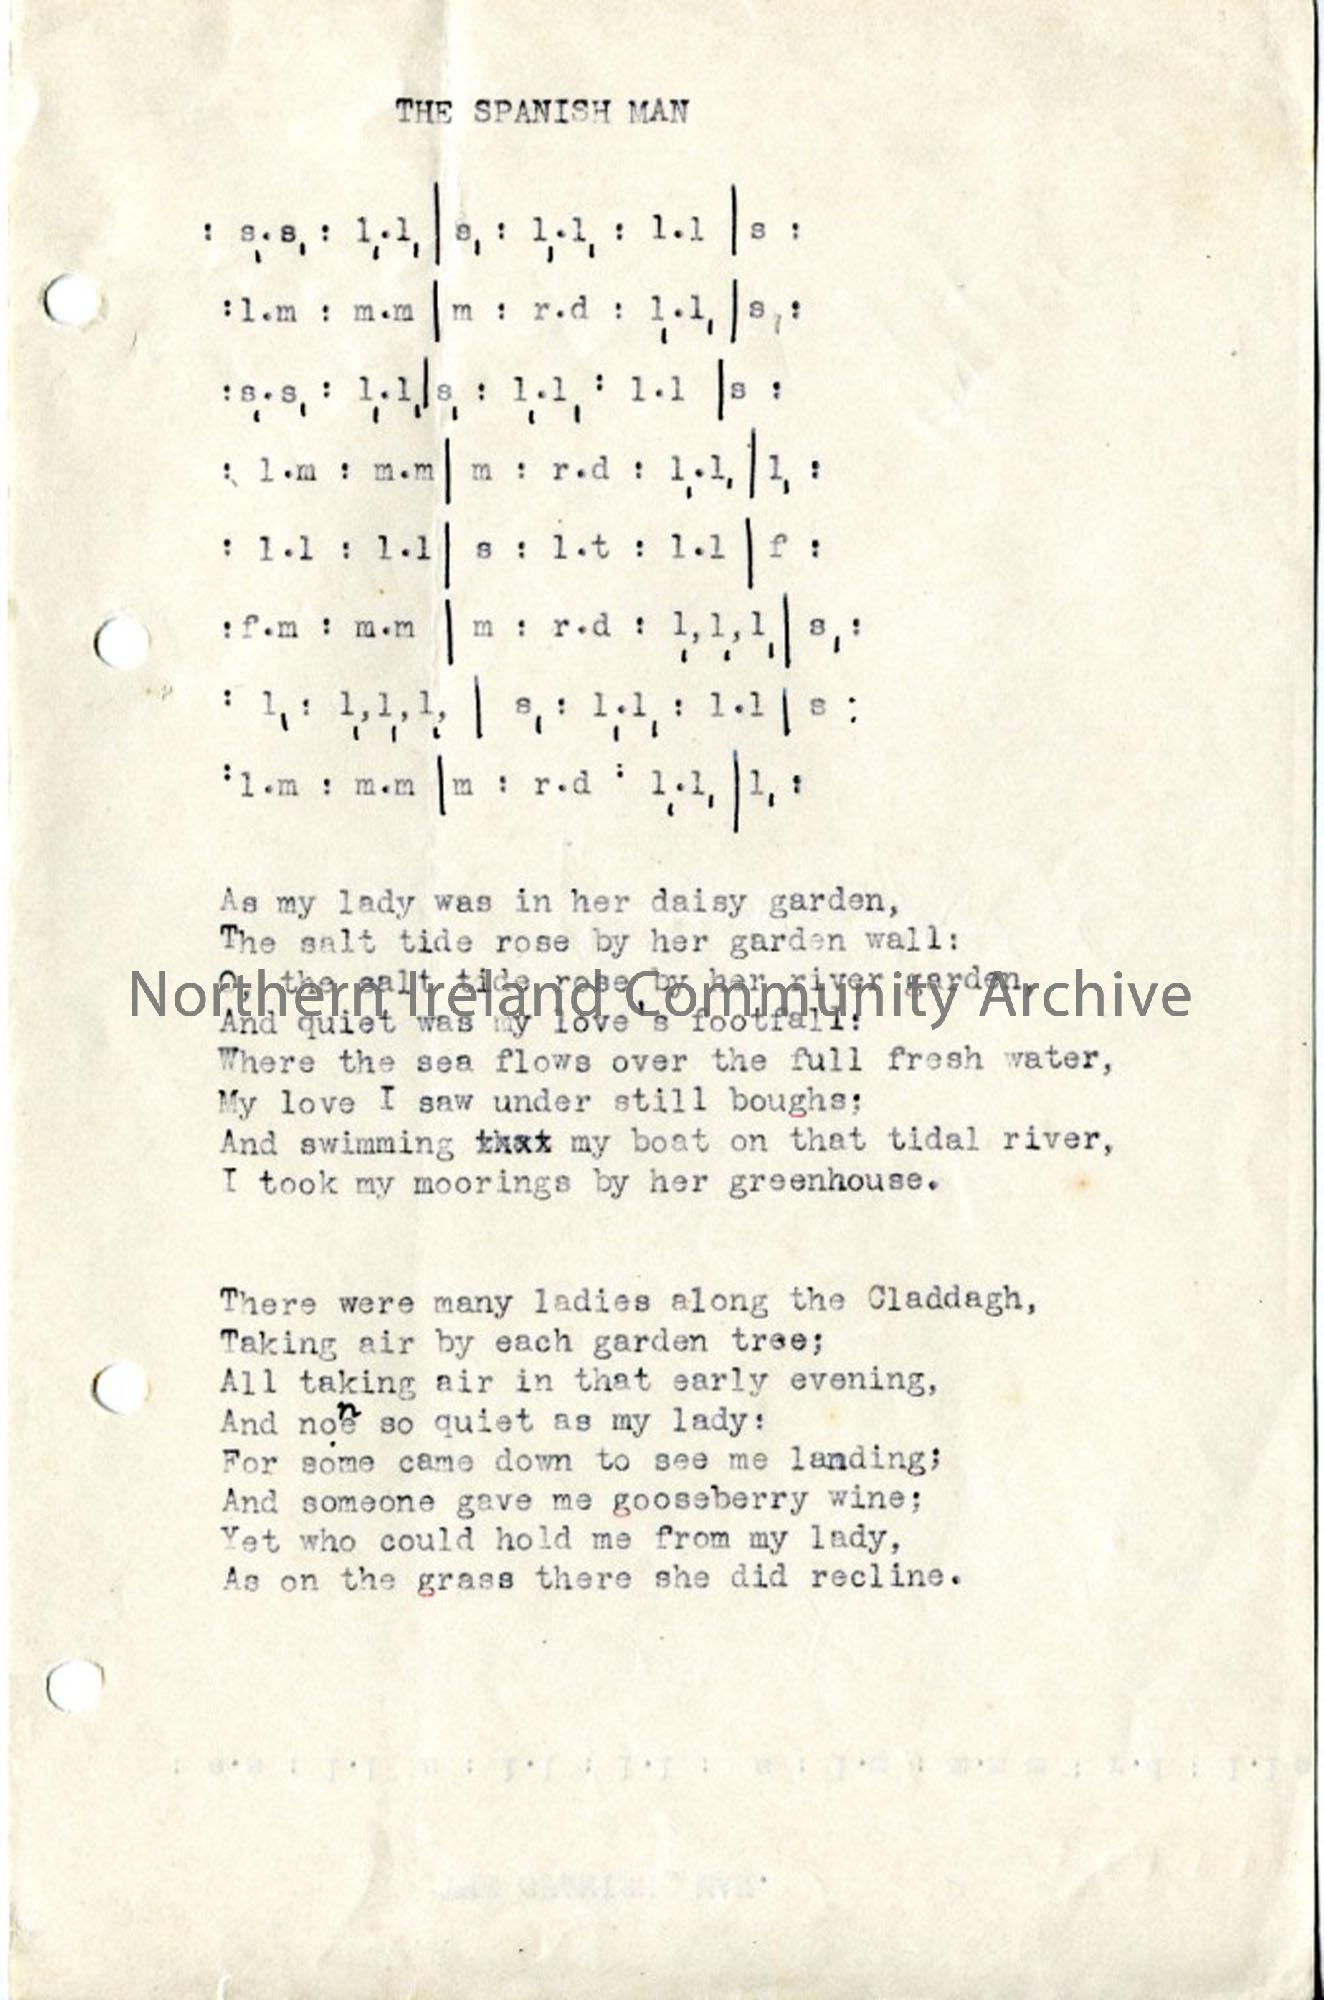 THE SPANISH MAN
: s͵.s͵ : l͵.l͵ | s͵ : l͵.l͵ : l.l | s :
:l.m : m.m | m : r.d : l͵.l͵ | s͵ :
:s͵.s͵ : l͵.l͵ | s͵ : l͵.l͵ : l.l | s :
: l.m : m.m | m : r.d : l͵.l͵ | l͵ :
: l.l : l.l | s : l.t : l.l | f :
:f.m : m.m | m : r.d : l͵,l͵,l͵ | s͵ :
: l͵ : l͵,l͵,l͵ | s͵ : l͵.l͵ : l.l | s :
:l.m : m.m | m : r.d : l͵.l͵ | l͵ :
As my lady was in her daisy garden,
The salt tide rose by her garden wall:
O, the salt tide rose by her river garden,
Northern Ireland Community Archive
And quiet was my love's footfall:
Where the sea flows over the full fresh water,
My love I saw under still boughs;
And swimming my boat on that tidal river,
I took my moorings by her greenhouse.
There were many ladies along the Claddagh,
Taking air by each garden tree;
All taking air in that early evening,
And none so quiet as my lady:
For some came down to see me landing;
And someone gave me gooseberry wine;
Yet who could hold me from my lady,
As on the grass there she did recline.